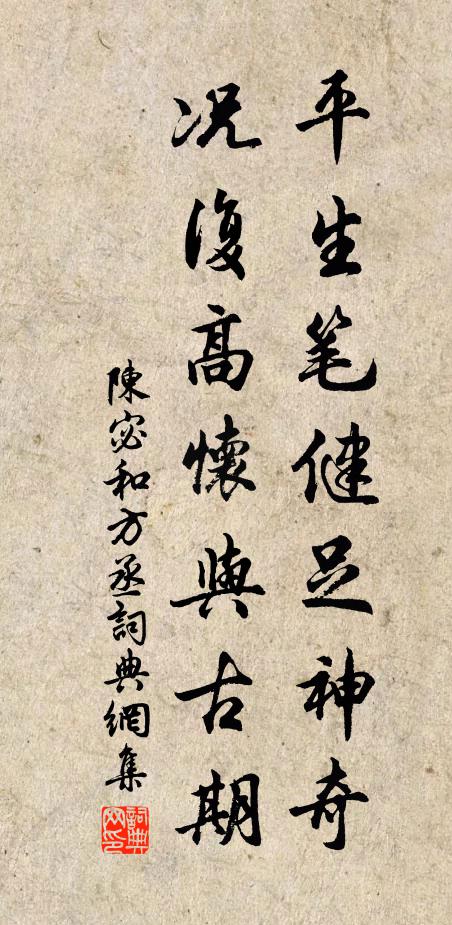 平生笔健足神奇
况復高懷與古期
陳宓和方丞詞典網集
詞典網印